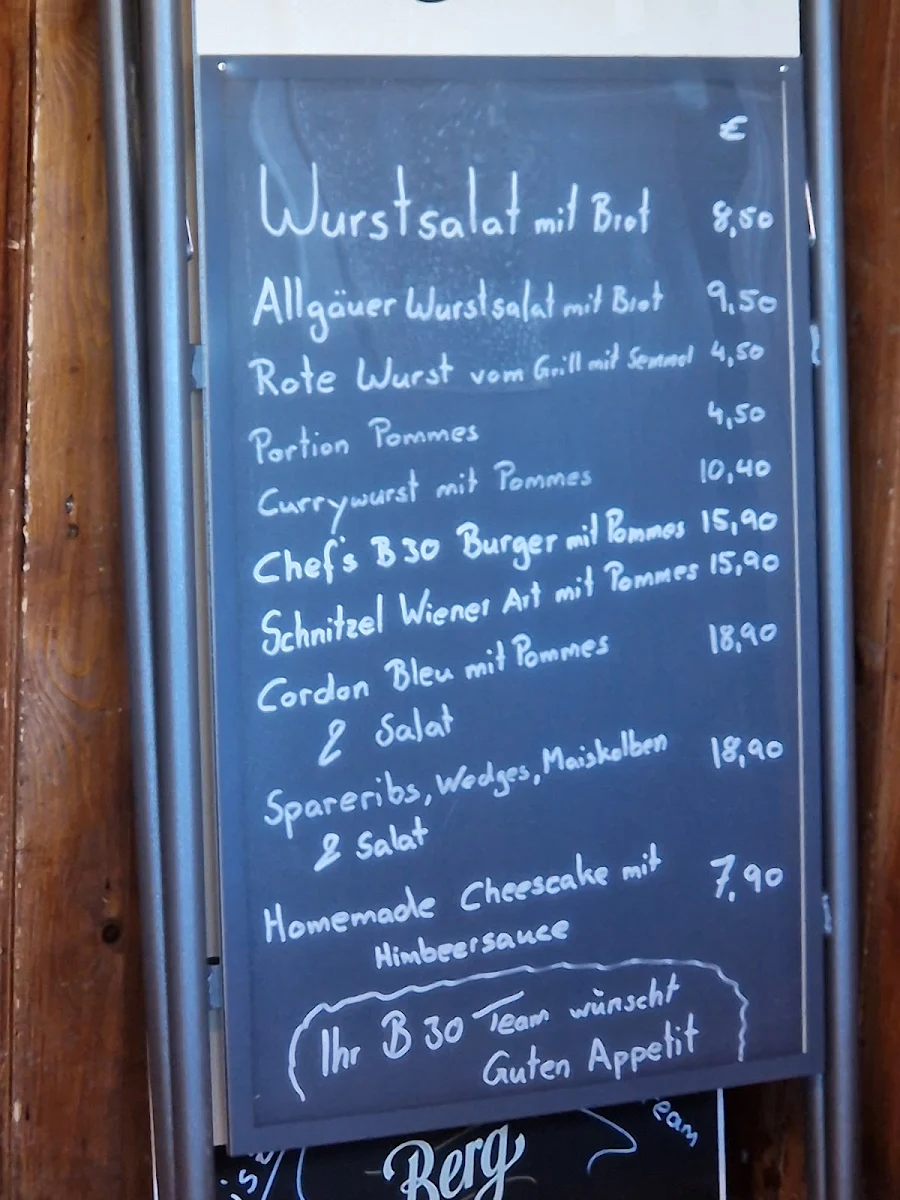 €
Wurstsalat mit Brot 8,50
Allgäuer Wurstsalat mit Brot 9,50
Rote Wurst vom Grill mit Semmel 4,50
Portion Pommes 4,50
Currywurst mit Pommes 10,40
Chef's B30 Burger mit Pommes 15,90
Schnitzel Wiener Art mit Pommes 15,90
Cordon Bleu mit Pommes 18,90
& Salat
Spareribs, Wedges, Maiskolben 18,90
& Salat
Homemade Cheesecake mit 7,90
Himbeersauce
Ihr B30 Team wünscht
Guten Appetit
Berg